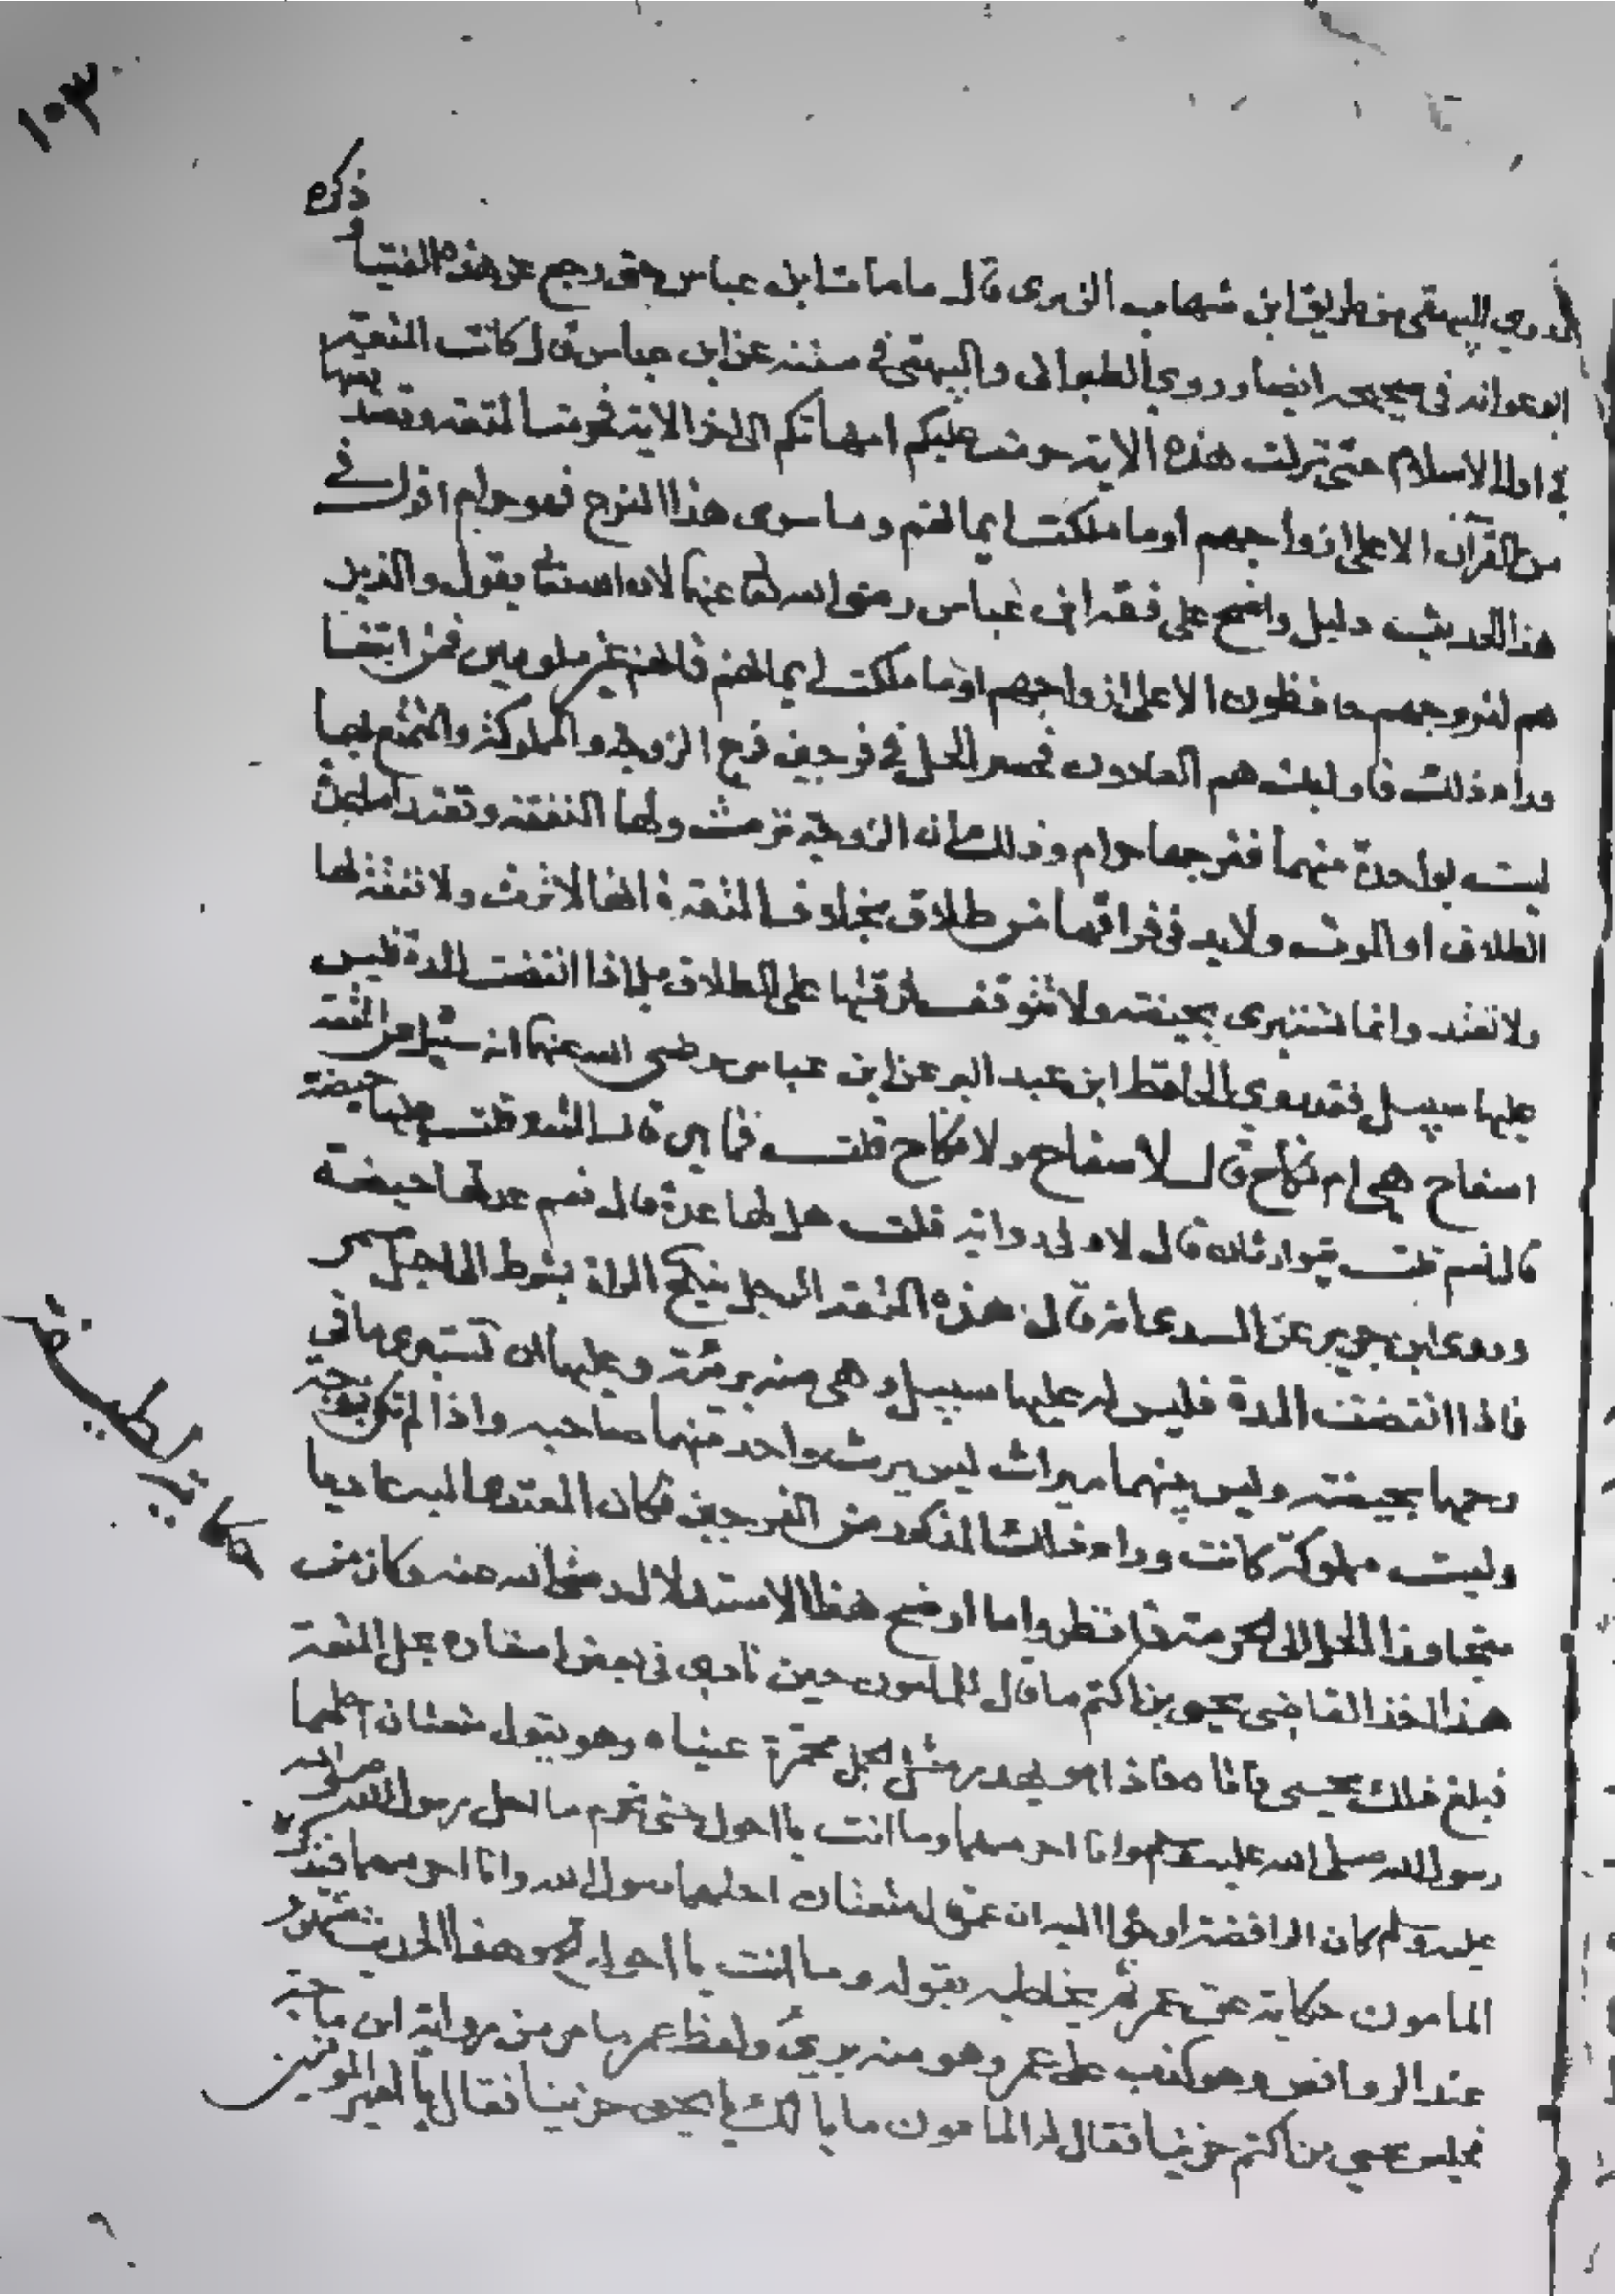 ١٠٣
وروي البيهقي من طريق ابن شهاب الزهري قال ما مات ابن عباس حتى رجع عن هذه الفتيا وذكره
ابو عوانه في صحيحه ايضا وروي الطبراني والبيهقي في سننه عن ابن عباس قال كانت المتعة
في اول الاسلام حتى نزلت هذه الاية حرمت عليكم امهاتكم الى اخر الاية فحرمت المتعة وتصديقها
من القرآن الا على ازواجهم او ما ملكت ايمانهم وما سوى هذا الفرج فهو حرام اقول في
هذا الحديث دليل واضح على فقه ابن عباس رضي الله تعا عنهما لان الله تعا يقول والذين
هم لفروجهم حافظون الا على ازواجهم او ما ملكت ايمانهم فانهم غير ملومين فمن ابتغا
وراء ذلك فاوليك هم العادون فحصر الحل في فرجين فرج الزوجة والمملوكة والمتمتع بها
ليست بواحدة منهما ففرجها حرام وذلك ان الزوجة ترث ولها النفقة وتعتد اما من
الطلاق او الموت ولا بد في فراقها من طلاق بخلاف المتعة فانها لا ترث ولا نفقة لها
ولا تعتد وانما تستبرى بحيضة ولا تتوقف فرقتها على الطلاق بل اذا انقضت المدة فليس
عليها سبيل فقد روي الحافظ ابن عبد البر عن ابن عباس رضى الله عنهما انه سئل عن المتعة
اسفاح هي ام نكاح قال لا سفاح ولا نكاح قلت فما هي قال المتعة قلت عليها حيضة
قال نعم قلت يتوارثان قال لا وفي رواية قلت هل لها عدة قال نعم عدتها حيضة
وروى ابن جرير عن السدى انه قال هذه المتعة الرجل ينكح المراة بشرط الى اجل مسمى
فاذا انقضت المدة فليس له عليها سبيل وهي منه بريئة وعليها ان تستبرى ما في
رحمها بحيضة وليس بينهما ميراث ليس يرث واحد منهما صاحبه واذا لم تكن زوجة
وليست مملوكة كانت وراء ذلك المذكور من الفرجين فكان المعتد اليه عاديا
متجاوزا الحل الى الحرمة فانظر واما اوضح هذا الاستدلال رضي الله عنه وكان من
هذا اخذ القاضي يحيى بن اكثم ما قال للمامون حين نادى في بعض اسفاره بحل المتعة
فبلغ ذلك يحيى فاتاه فاذا هو يهدر مثل الجمل محمرة عيناه وهو يقول متعتان احلهما
رسول الله صلى الله عليه وسلم وانا احرمهما وما انت يا احول حتى تحرم ما احل رسول الله صلى الله
عليه وسلم كان الرافضة اوحوا اليه ان عمر قال متعتان احلهما رسول الله وانا احرمهما فذكره
المامون حكاية عن عمر ثم يخاطبه بقوله وما انت يا احول الخ وهذا الحديث مشهور
عند الروافض وهو كذب على عمر وهو منه بريئ ولفظ عمر ما مر من رواية ابن ماجة
فجلس يحيى بن اكثم حزينا فقال له المامون ما بالك يا يحيى حزينا فقال يا امير المومنين
حكاية لطيفة